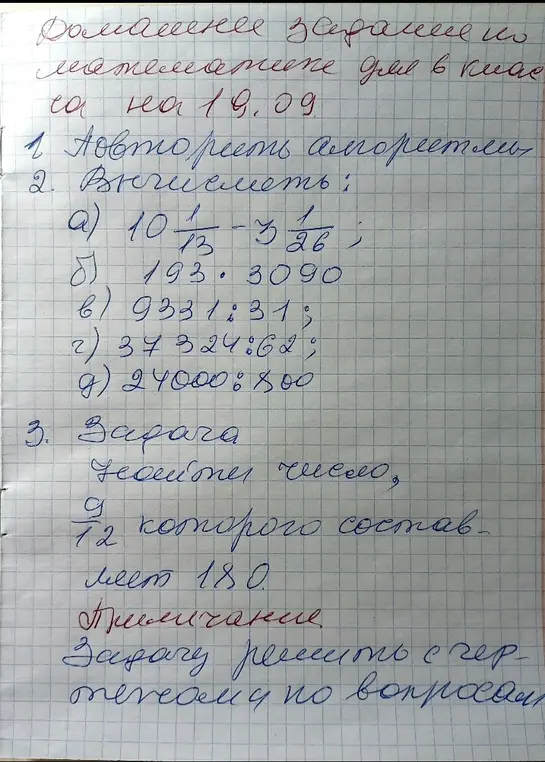 Домашнее задание по
математике для 6 клас
са на 19.09
1. Повторить алгоритмы
2. Вычислить:
а) 10 1/13 - 3 1/26;
б) 193 · 3090
в) 9331 : 31;
г) 37324 : 62;
д) 24000 : 800
3. Задача
Найти число,
9/12 которого состав-
ляет 180.
Примечание
Задачу решить с чер-
тежом и по вопросам